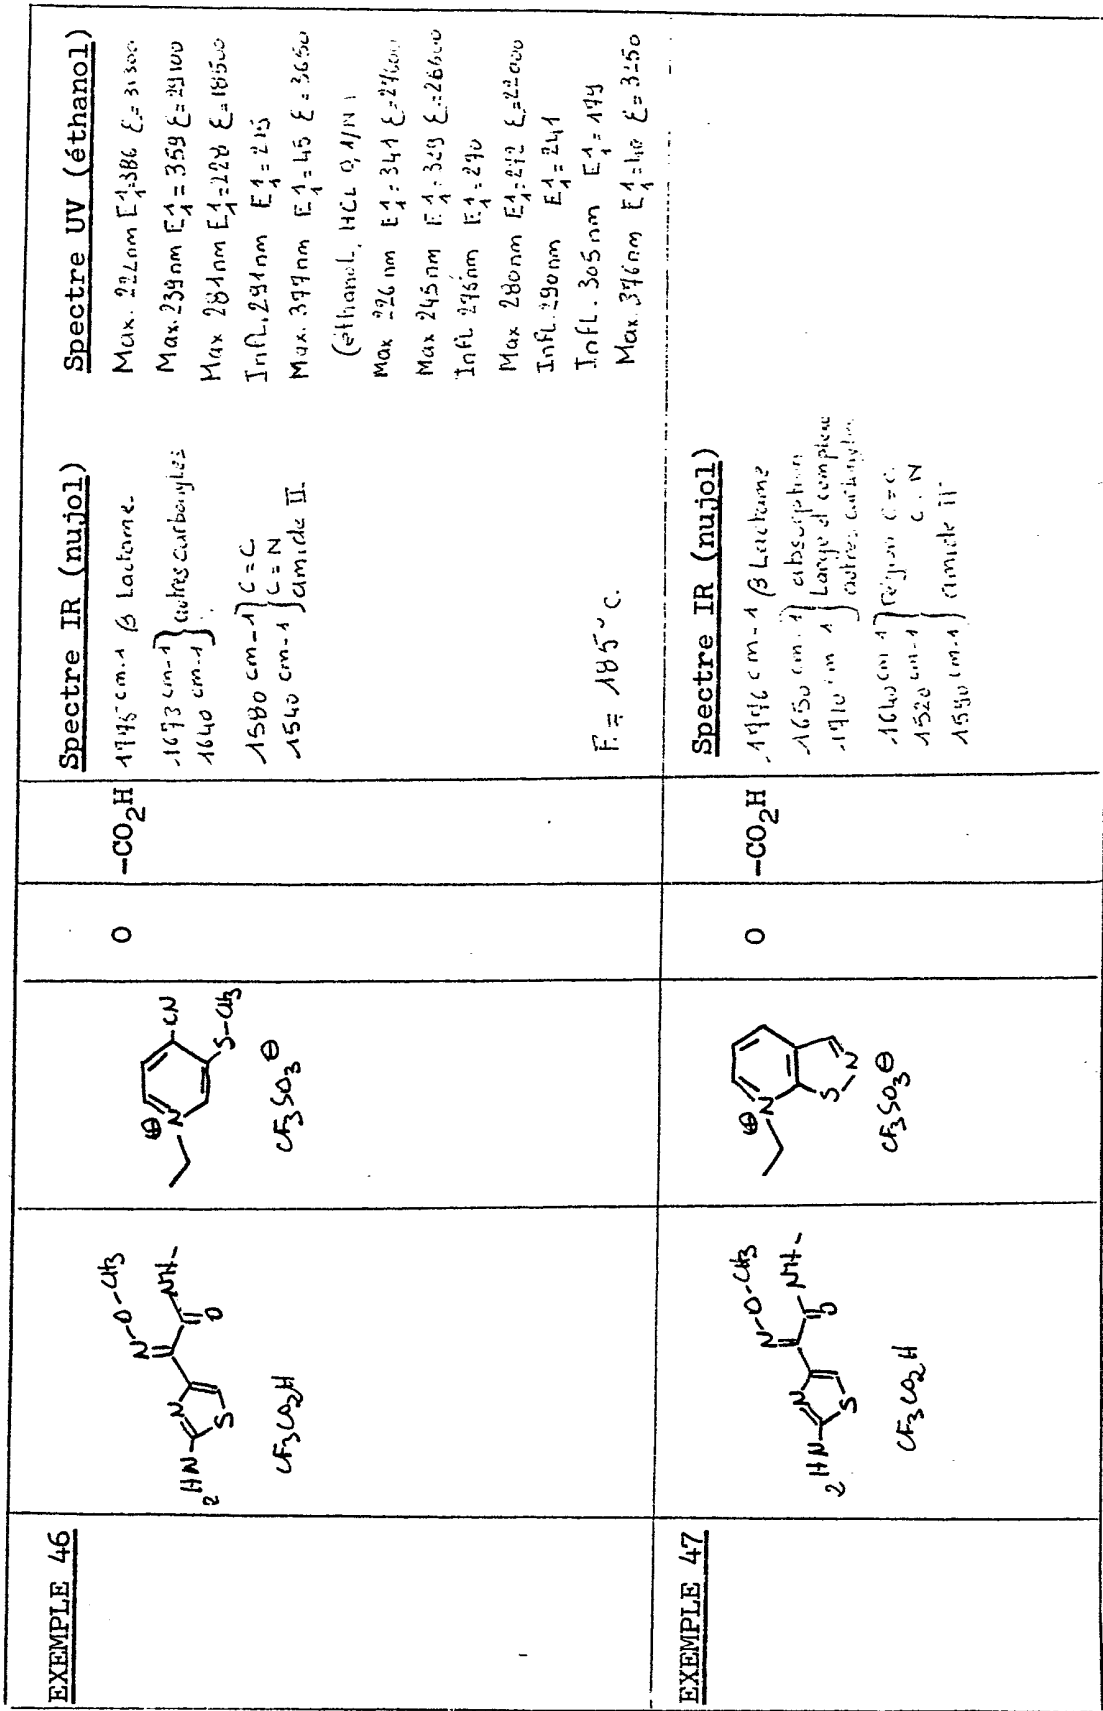 EXEMPLE 46
H₂N
N
S
N-O-CH₃
NH-
O
CF₃CO₂H
⊕
N
CN
S-CH₃
CF₃SO₃⊖
O
-CO₂H
Spectre IR (nujol)
1775 cm-1 β Lactame
1673 cm-1
1640 cm-1
autres carbonyles
1580 cm-1
1540 cm-1
C=C
C=N
amide II
F. = 185°C.
Spectre UV (éthanol)
Max. 222nm E¹₁=386 ε=31300
Max. 239nm E¹₁=359 ε=29100
Max 281nm E¹₁=228 ε=18500
Infl. 291nm E¹₁=215
Max. 377nm E¹₁=45 ε=3650
(éthanol, HCl 0,1/N)
Max 226nm E¹₁=341
Max 245nm E¹₁=329 ε=26600
Infl. 275nm E¹₁=270
Max 280nm E¹₁=272 ε=22000
Infl. 290nm E¹₁=241
Infl. 305nm E¹₁=179
Max. 376nm E¹₁=40 ε=3250
EXEMPLE 47
H₂N
N
S
N-O-CH₃
NH-
O
CF₃CO₂H
⊕
N
S
N
CF₃SO₃⊖
O
-CO₂H
Spectre IR (nujol)
1776 cm-1 β Lactame
1650 cm-1
1710 cm-1
absorption
Large et complexe
autres carbonyles
1640 cm-1
1520 cm-1
1590 cm-1
région C=C
C=N
amide II